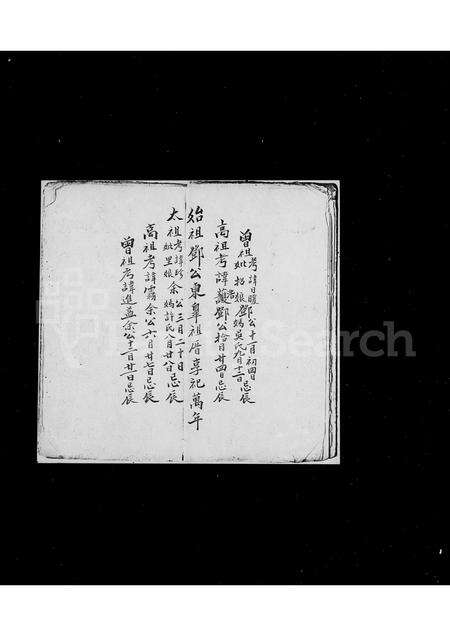 曾祖考諱日暄鄧公十一月初四日忌辰
妣招娘鄧媽吳氏九月十三日忌辰
高祖考諱鄧公拾月廿四日忌辰
始祖鄧公東皐祖厝享祀萬年
太祖考諱珍余公三月二十日忌辰
妣里娘余媽許氏八月廿八日忌辰
高祖考諱霱余公六月廿七日忌辰
曾祖考諱進益余公十二月廿一日忌辰
Search